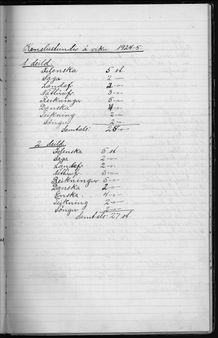 Kenslustundir á viku 1924-5.
1 deild
Íslenska 5 st
Saga 2 -"-
Landaf. 2 -"-
Náttúrf. 3 -"-
Reikningur 5 -"-
Danska 4 -"-
Teikning 2 -"-
Söngur 2 -"-
Samtals: 25 -"-
2 deild
Íslenska 5 st
Saga 2 -"-
Landaf. 2 -"-
Náttúrf. 3 -"-
Reikningur 5 -"-
Danska 2 -"-
Enska 4 -"-
Teikning 2 -"-
Söngur 2 -"-
Samtals: 27 st